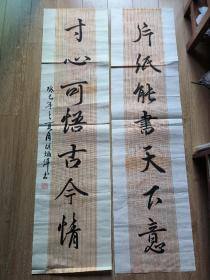 片纸能书天下意
寸心可悟古今情